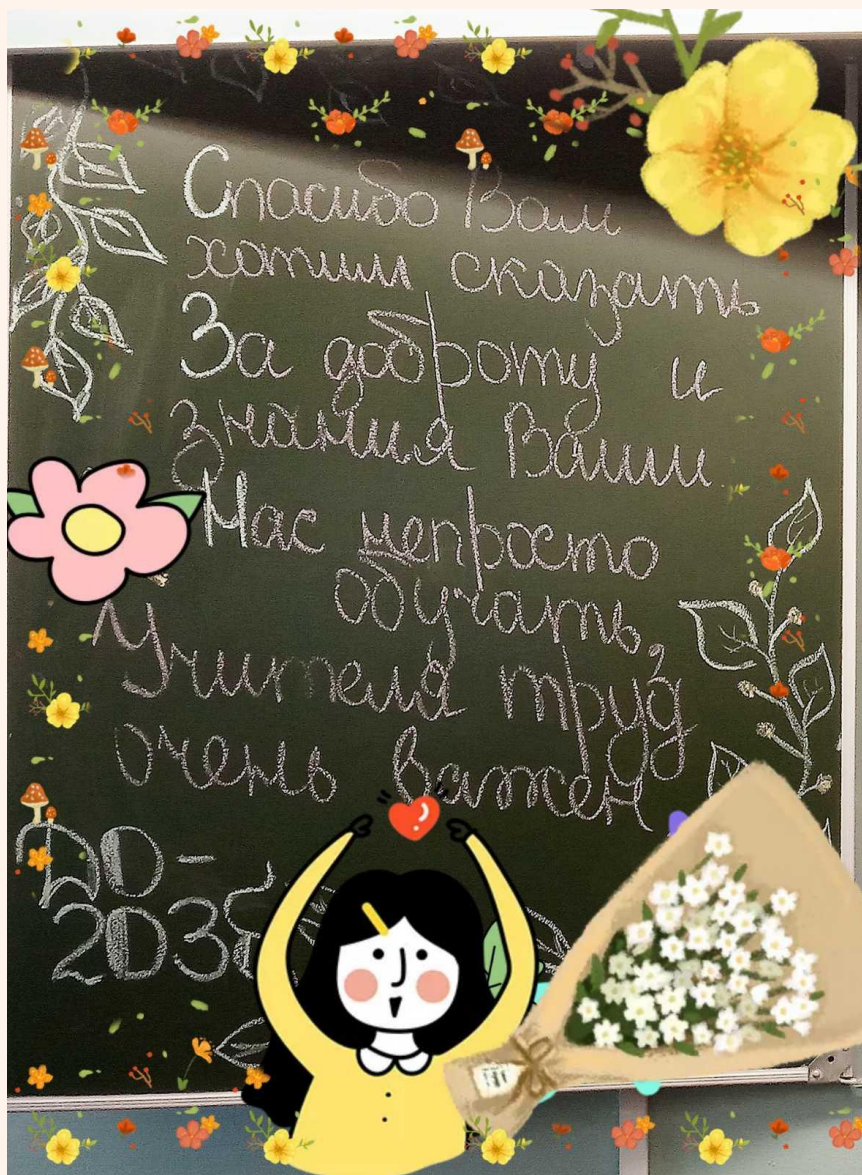 Спасибо Вам
хотим сказать
За доброту и
знания Ваши
Нас непросто
обучать,
Учителя труд
очень важен
DO-